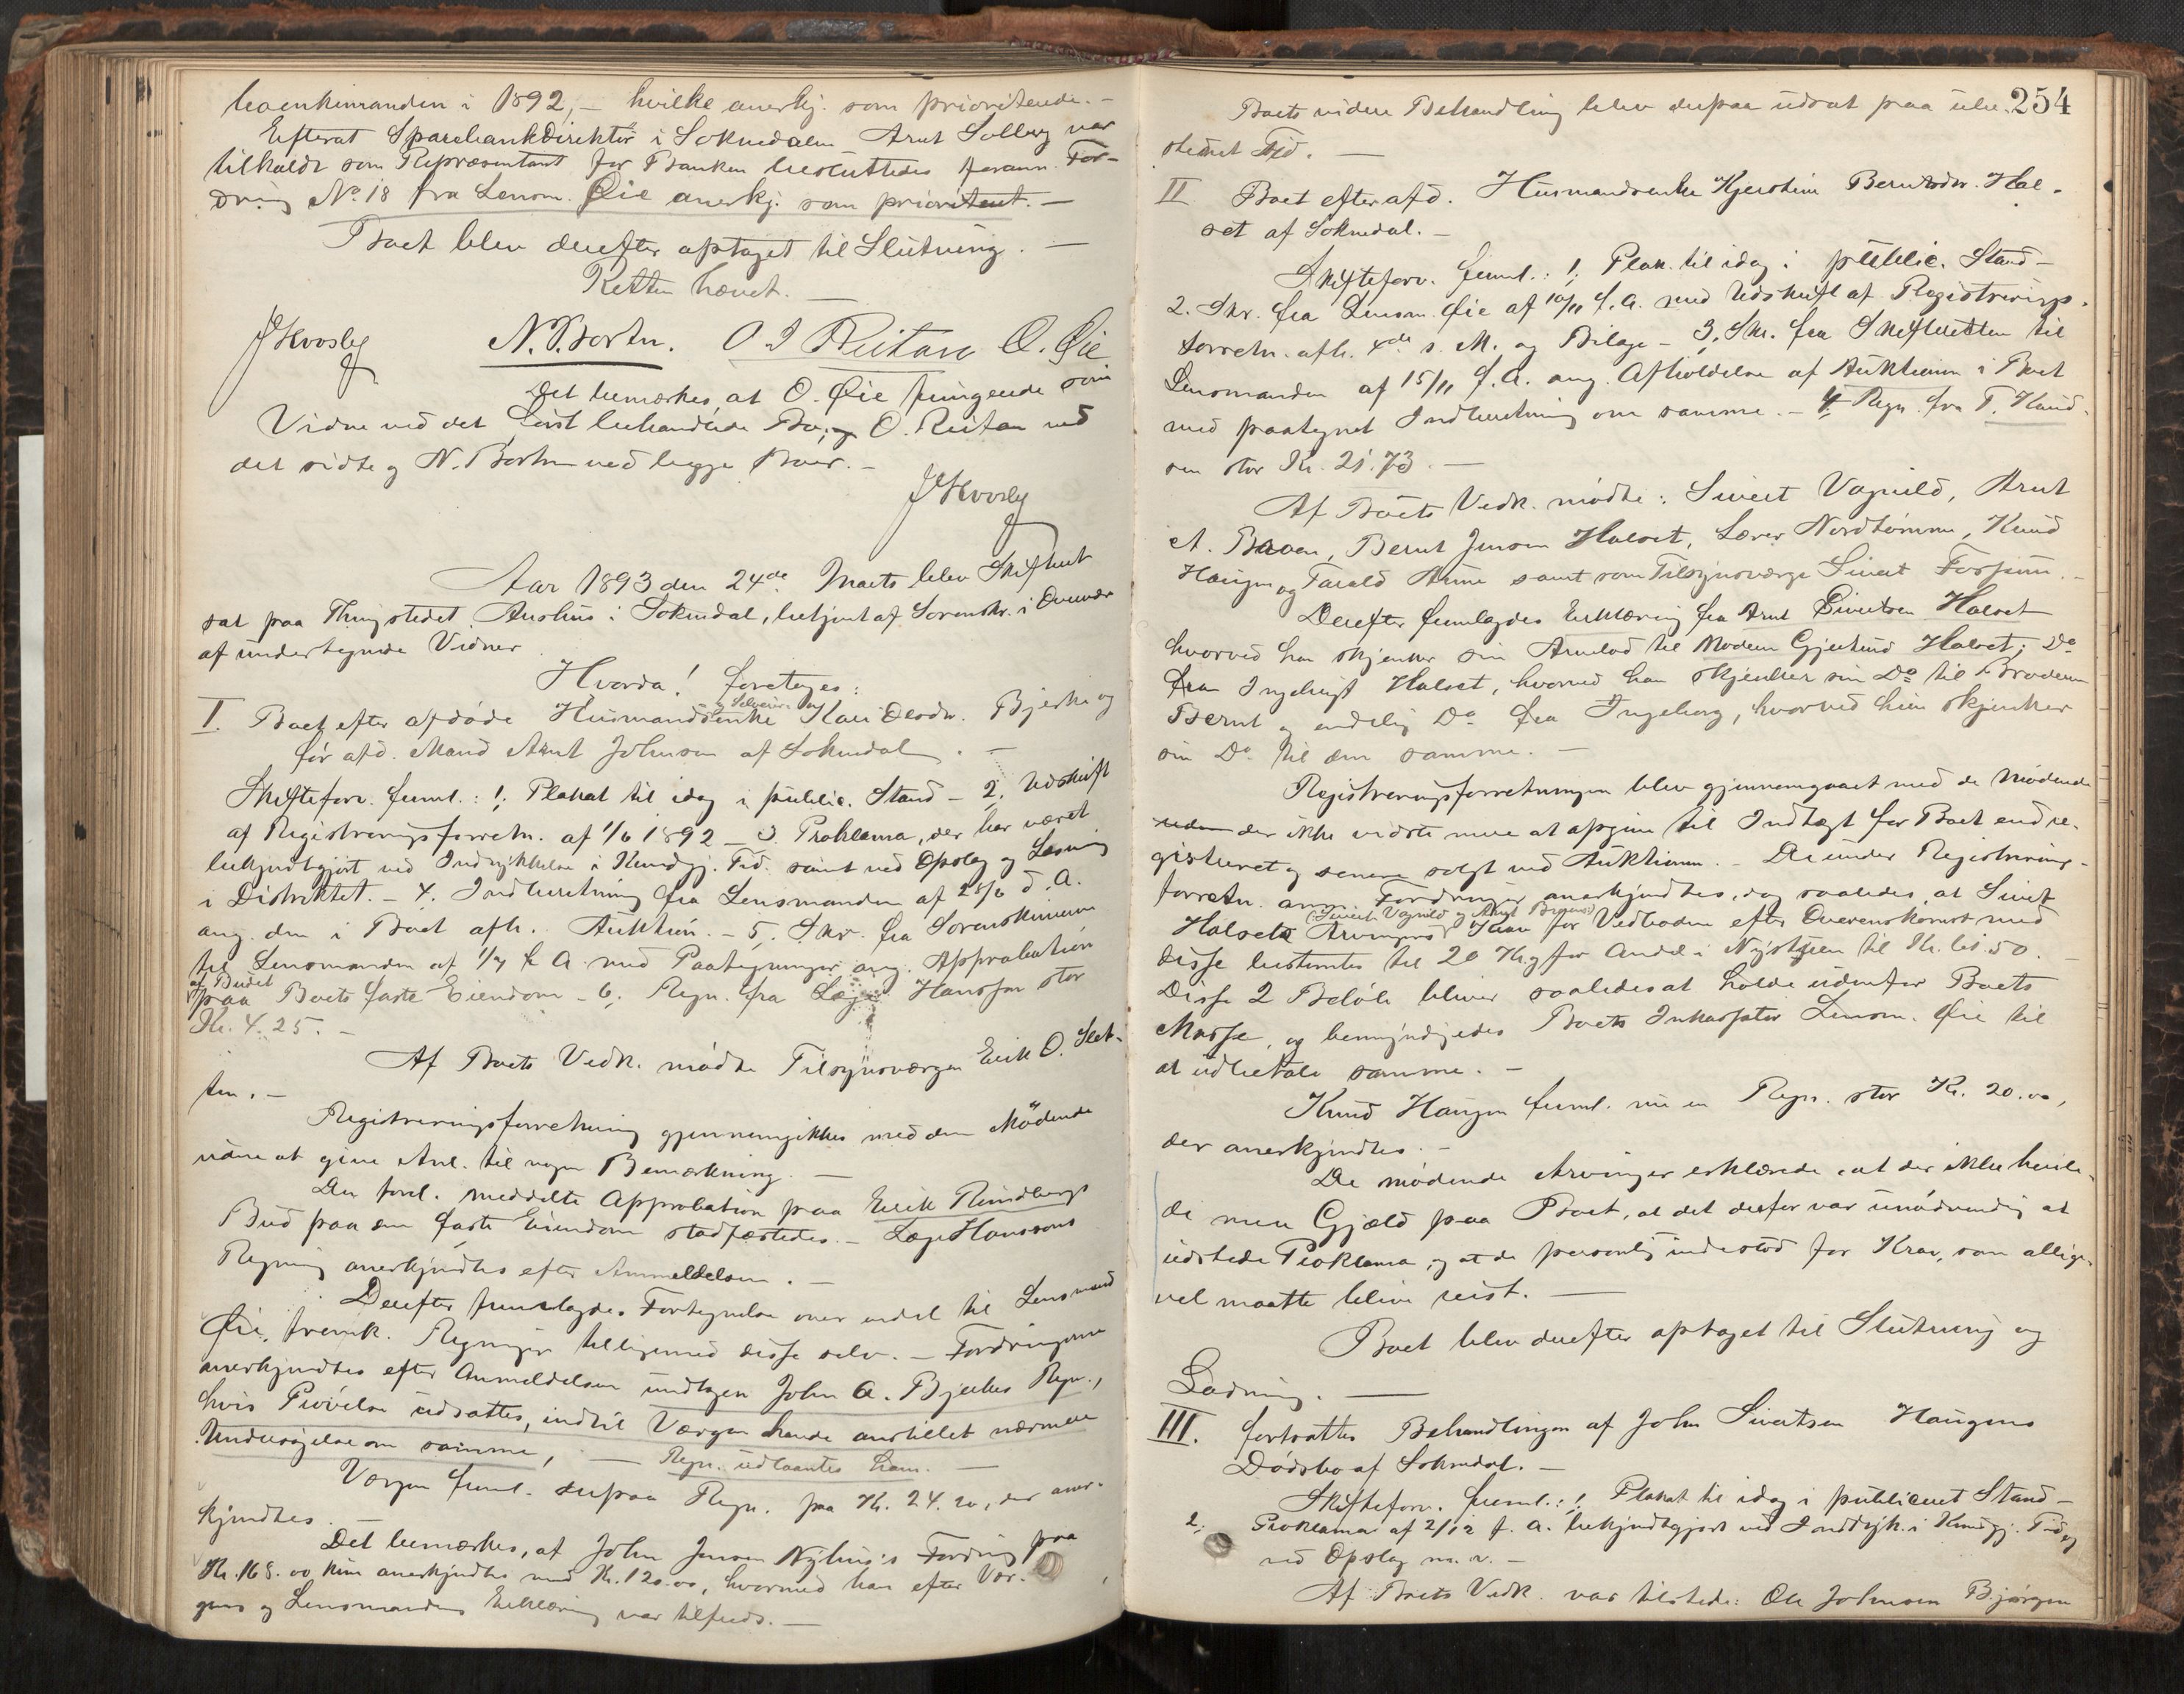 1892, – hvilke anerkj. som prioriterede. –
Efterat Sparebankdirektør i Soknedalen Arnt Solberg var
tilkaldt som Repræsentant for Banken besluttedes forann. For-
dring No 18 fra Lensm. Øie anerkj. som prioriteret. –
Boet blev derefter optaget til Slutning. –
Retten hævet. –
N. Bortn. O J Reitan O. Øie
Det bemærkes, at O. Øie fungerede som
Vidne ved det først behandlede Bo, og O. Reitan ved
det sidste og N. Bortn ved begge Boer. –
Aar 1893 den 24de Marts blev Skifteret
sat paa Thingstedet Aushus i Soknedal, betjent af Sorenskr. i Overvær
af undertegnede Vidner.
Hvorda! foretoges:
I. Boet efter afdøde Husmandsenke og Selveier Kari Olsdr. Bjerke og
før afd. Mand Arnt Johnsen af Soknedal. –
Skifteforv. freml.: 1; Plakat til idag i public. Stand – 2, Udskrift
af Registreringsforretn. af 1/6 1892 – 3. Proklama, der har været
bekjendtgjort ved Indrykkelse i Kundgj. Tid. samt ved Opslag og Læsning
i Distriktet. – 4. Indberetning fra Lensmanden af 25/6 d. A.
ang. den i Boet afh. Auktion. – 5; Skr. fra Sorenskriveren
til Lensmanden af 1/7 f. A. med Paategninger ang. Approbation
af Budet
paa Boets faste Eiendom – 6; Regn. fra Læge Hansson stor
Kr. 4.25. –
Af Boets Vedk. mødte Tilsynsværgen Erik O. Slet-
ten. –
Registreringsforretning gjennemgikkes med den Mødende
uden at give Anl. til nogen Bemærkning. –
Den forel. meddelte Approbation paa Erik Rundbergs
Bud paa den faste Eiendom stadfæstedes. – Læge Hanssons
Regning anerkjendtes efter Anmeldelsen. –
Derefter fremlagdes Fortegnelse over endel til Lensmand
Øie, fremk. Regninger tilligemed disse selv. – Fordringerne
anerkjendtes efter Anmeldelsen undtagen John A. Bjerkes Regn.,
hvis Prøvelse udsattes, indtil Værgen havde anstillet nærmere
Undersøgelse om samme, – Regn. udlaantes ham. –
Værgen freml. derpaa Regn. paa Kr. 24.20, der aner-
kjendtes. –
Det bemærkes, at John Jensen Nyhus's Fordring paa
Kr. 168.00 kun anerkjendtes med Kr. 120.00, hvormed han efter Vær-
gens og Lensmandens Erklæring var tilfreds. –
254
Boets videre Behandling blev derpaa udsat paa ube-
stemt Tid. –
II Boet efter afd. Husmandsenke Kjerstine Berntsdr. Hal-
set af Soknedal. –
Skifteforv. freml.: 1; Plak. til idag i public. Stand –
2. Skr. fra Lensm. Øie af 10/11 f. A. med Udskrift af Registrerings-
forretn. afh. 4de s. M. og Bilage – 3; Skr. fra Skifteretten til
Lensmanden af 15/11 f. A. ang. Afholdelse af Auktionen i Boet
med paategnet Indberetning om samme. – 4; Regn. fra T. Knud-
sen stor Kr. 21.73. –
Af Boets Vedk. mødte: Sivert Vagnild, Arnt
A. Braaen, Bernt Jensen Halset, Lærer Nordtømme, Knud
Haugen og Tarald Aune samt som Tilsynsværge Sivert Forsem. –
Derefter fremlagdes Erklæring fra Arnt Sivertsen Halset
hvorved han skjenker sin Arvelod til Moderen Gjertrud Halset; Do
fra Ingebrigt Halset, hvorved han skjenker sin Do til Broderen
Bernt og endelig Do fra Ingeborg, hvorved hun skjenker
sin Do til den samme. –
Registreringsforretningen blev gjennemgaaet med de Mødende
uden der ikke vidste mere at opgive til Indtægt for Boet end re-
gistreret og senere solgt ved Auktionen. – De under Registrerings-
forretn. ang. Fordringer anerkjendtes, dog saaledes, at Sivert
(Sivert Vagnild og Arnt Braaen)
Halsets Arvingers Krav for Vedboden efter Overenskomst med
disse bestemtes til 20 Kr. og for Andel i Nystuen til Kr. 61.50. –
Disse 2 Beløb bliver saaledes at holde udenfor Boets
Masse, og bemyndigedes Boets Inkassator Lensm. Øie til
at udbetale samme. –
Knud Haugen freml. nu en Regn. stor Kr. 20.00,
der anerkjendtes. –
De mødende Arvinger erklærede, at der ikke hvile-
de mere Gjæld paa Boet, at det derfor var unødvendig at
udstede Proklama, og at de personlig indestod for Krav, som allige-
vel maatte blive reist. –
Boet blev derefter optaget til Slutning og
Lodning. –
III. fortsattes Behandlingen af John Sivertsen Haugens
Dødsbo af Soknedal. –
Skifteforv. freml.: 1; Plakat til idag i publiceret Stand –
2; Proklama af 2/12 f. A. bekjendtgjort ved Indryk. i Kundgj. Tid. og
ved Opslag m. v. –
Af Boets Vedk. var tilstede: Ole Johnsen Bjørgen